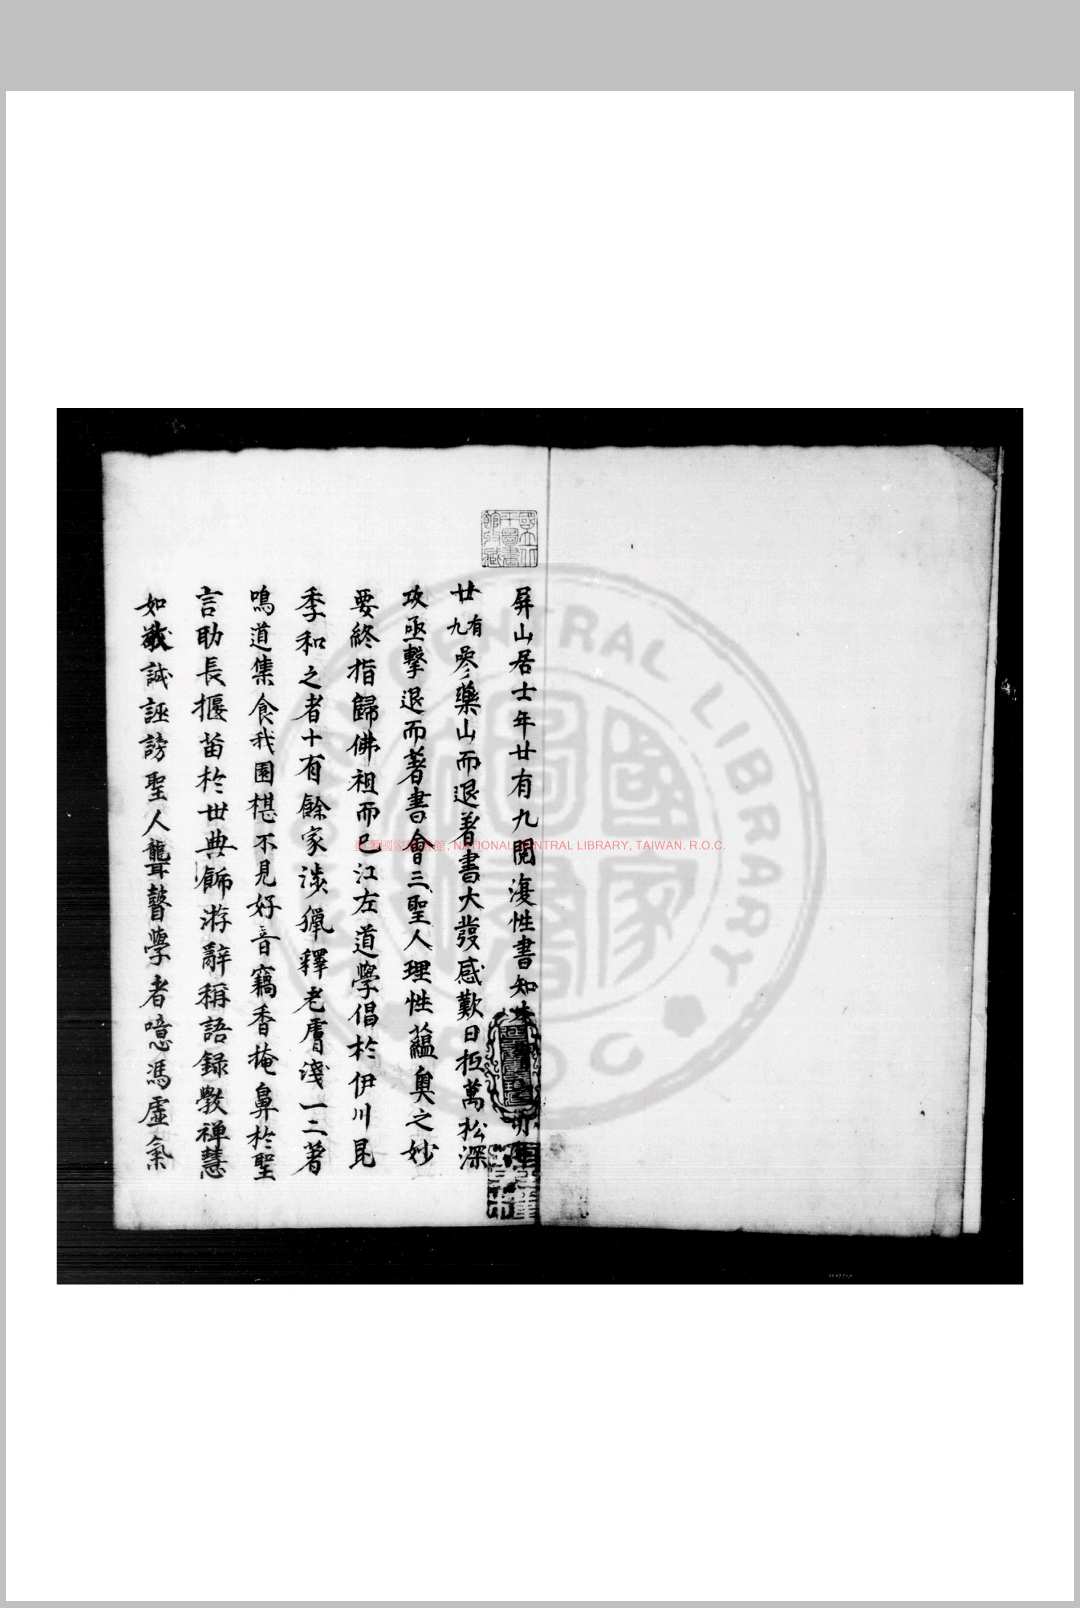 屏山居士年廿有九閱復性書知李習之亦廿
有九參藥山而退著書大發感歎日抵萬松深
攻亟擊退而著書會三聖人理性蘊奧之妙
要終指歸佛祖而已江左道學倡於伊川昆
季和之者十有餘家涉獵釋老膚淺一二著
鳴道集食我園椹不見好音竊香掩鼻於聖
言助長揠苗於世典飾游辭稱語錄斆禪慧
如敬誠誣謗聖人聾瞽學者噫馮虛氣
NATIONAL CENTRAL LIBRARY, TAIWAN. R.O.C.
CENTRAL LIBRARY